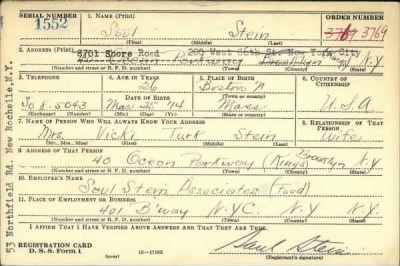 SERIAL NUMBER 1. NAME (Print) ORDER NUMBER
1552 Saul Stein 3769 3769
(First) (Middle) (Last)
2. ADDRESS (Print)
8701 Shore Road 200 West 86th St. New York City
40 Ocean Parkway Brooklyn Kings N.Y.
(Number and street or R. F. D. number) (Town) (County) (State)
3. TELEPHONE 4. AGE IN YEARS 5. PLACE OF BIRTH 6. COUNTRY OF CITIZENSHIP
26 Boston
5043 DATE OF BIRTH (Town or county)
Mar. 25 '14 Mass U.S.A
(Exchange) (Number) (Mo.) (Day) (Yr.) (State or country)
7. NAME OF PERSON WHO WILL ALWAYS KNOW YOUR ADDRESS 8. RELATIONSHIP OF THAT PERSON
Mrs. Vicki Turk Stein Wife
(Mr., Mrs., Miss) (First) (Middle) (Last)
9. ADDRESS OF THAT PERSON
40 Ocean Parkway (Kings) Brooklyn N.Y.
(Number and street or R. F. D. number) (Town) (County) (State)
10. EMPLOYER'S NAME
Saul Stein Associates (Food)
11. PLACE OF EMPLOYMENT OR BUSINESS
401 B'way N.Y.C. N.Y. N.Y
(Number and street or R. F. D. number) (Town) (County) (State)
I AFFIRM THAT I HAVE VERIFIED ABOVE ANSWERS AND THAT THEY ARE TRUE.
REGISTRATION CARD
D. S. S. Form 1 (over) Saul Stein
(Registrant's signature)
53 Northfield Rd. New Rochelle, N.Y.